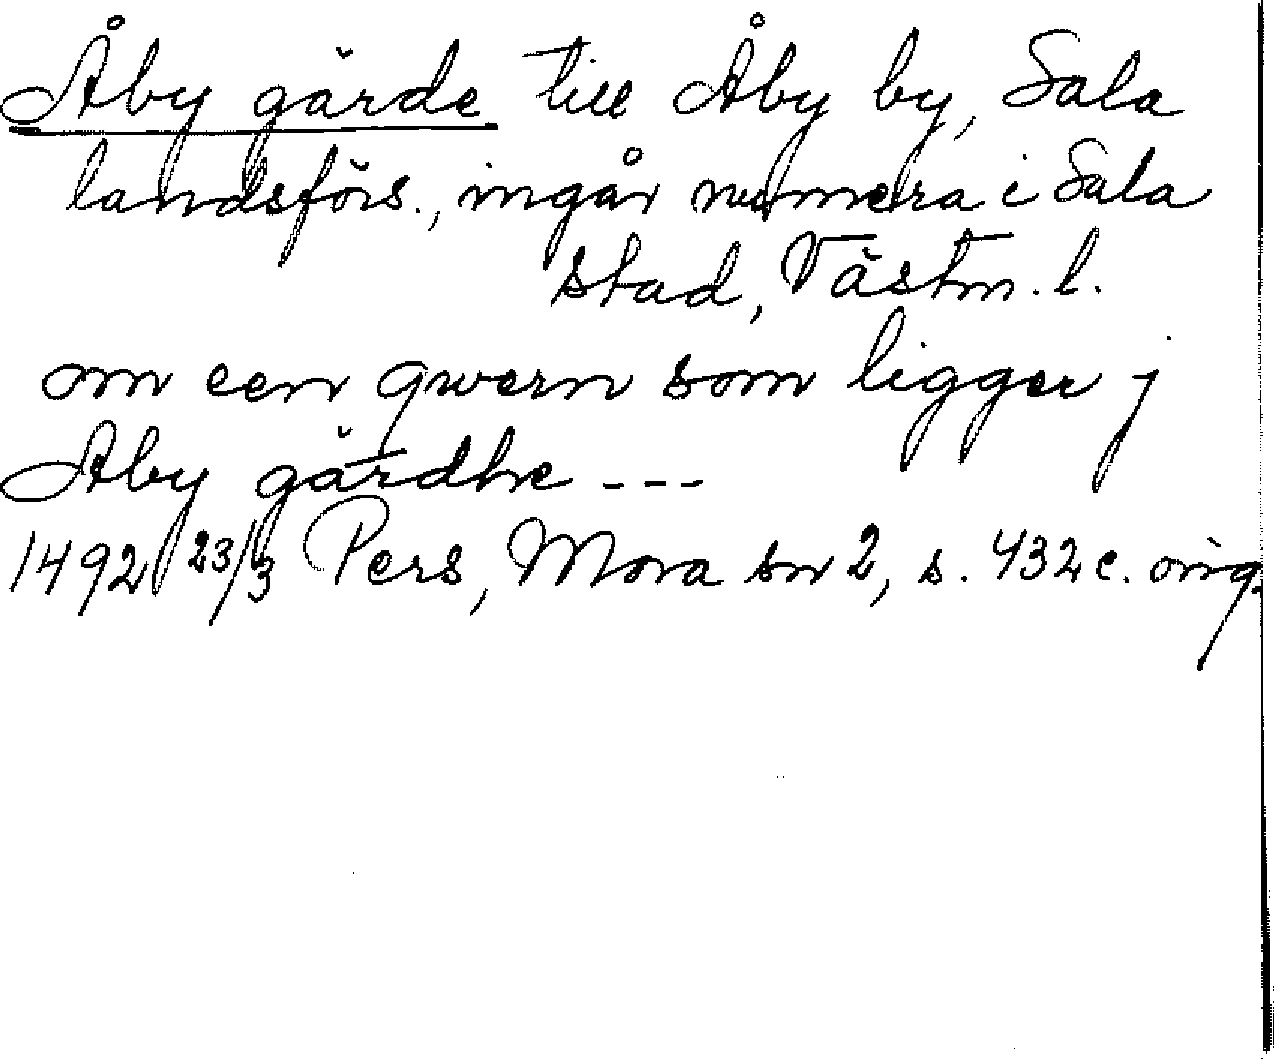 Åby gärde till Åby by, Sala
landsförs., ingår numera i Sala
stad, Västm. l.
om een qwern som ligger j
Aby gärdhe ---
1492 23/3 Pers, Mora sn 2, s. 432 c. orig.